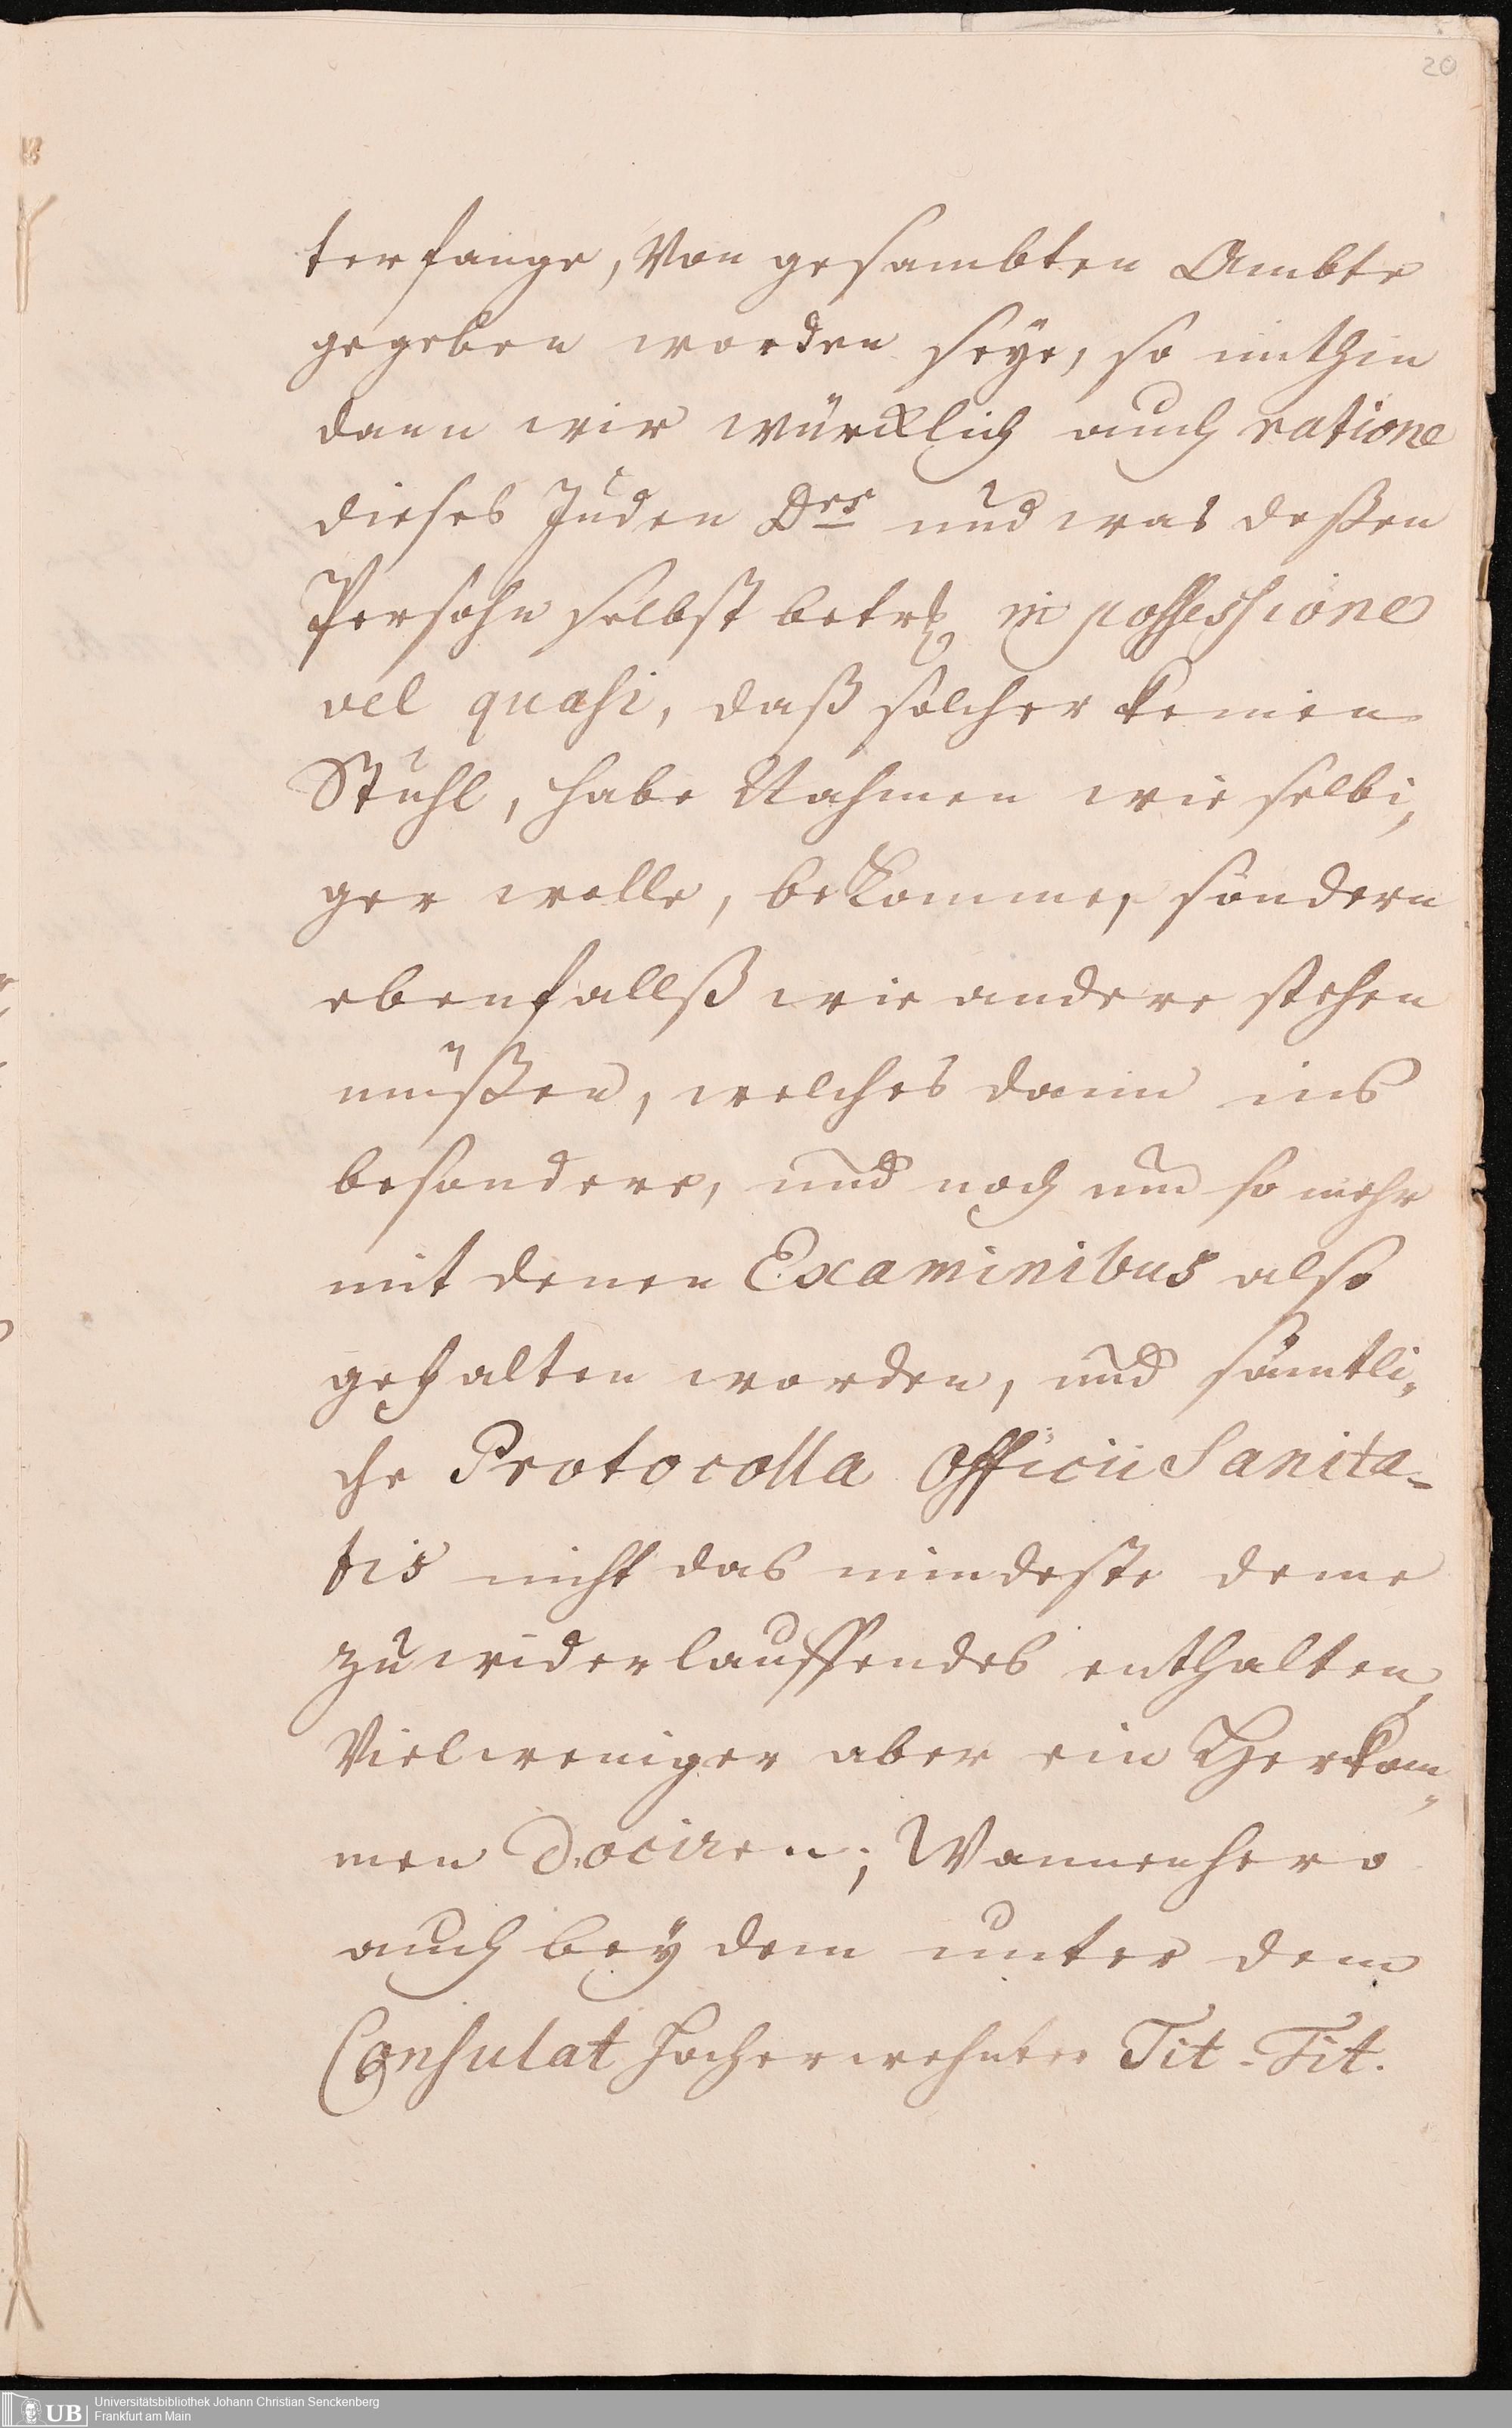 20
terfange, Von gesambten Ambte
gegeben worden seÿe, so mithin
dann wir würcklich auch ratione
dieses Juden Drs und was deßen
Persohn selbst betr. in possessione
vel quasi, daß solcher keinen
Stuhl, habe Nahmen wie selbi„
ger wolle, bekomme, sondern
ebenfallß wie andere stehen
müßen, welches dann ins
besondere, und noch um so mehr
mit denen Examinibus also
gehalten worden, und sämtli„
che Protocolla Officii Sanita-
tis nicht das mindeste deme
zuwiderlauffendes enthalten,
Vielweniger aber ein Herkom„
men dociren; Wannenhero
auch beÿ dem unter dem
Consulat hocherwehnter Tit. Tit.
UB
Universitätsbibliothek Johann Christian Senckenberg
Frankfurt am Main